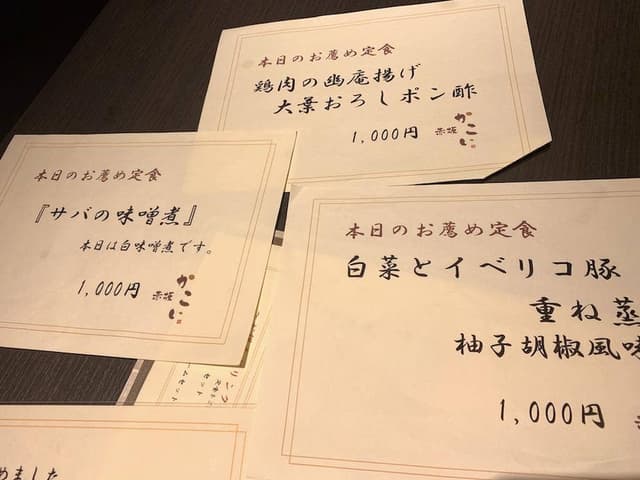 本日のお薦め定食
鶏肉の幽庵揚げ
大葉おろしポン酢
1,000円
赤坂
かこい
本日のお薦め定食
『サバの味噌煮』
本日は白味噌煮です。
1,000円
赤坂
かこい
本日のお薦め定食
白菜とイベリコ豚
重ね蒸
柚子胡椒風味
1,000円
赤
リング
セット
ームセット
めました